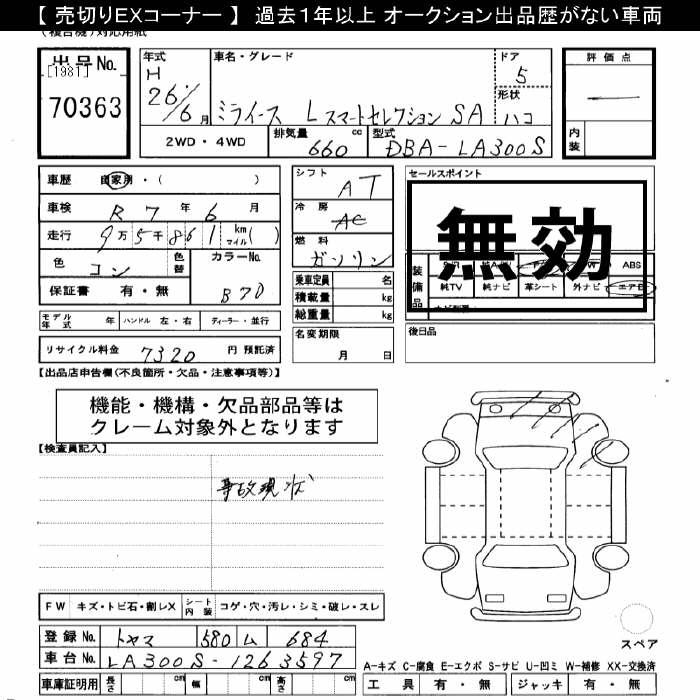 【 売切りEXコーナー 】 過去1年以上 オークション出品歴がない車両
(複合機)対応用紙
出品No. [1981] 70363
年式 H 26/6月
車名・グレード ミライース L スマートセレクション SA
ドア 5
形状 ハコ
2WD・4WD
排気量 660 cc
型式 DBA-LA300S
評価点 —
内装
車歴 自家用・( )
車検 R 7 年 6 月
走行 9万5千861 km マイル( )
色 コン 色替
カラーNo. B70
保証書 有・無
シフト AT
冷房 AC
燃料 ガソリン
乗車定員 名
積載量 kg
総重量 kg
セールスポイント
無効
装備品
ABS
純TV 純ナビ 革シート 外ナビ エアB
モデル年式 年 ハンドル 左・右 ディーラー・並行
リサイクル料金 7320 円 預託済
名変期限 月 日
後日品
【出品店申告欄(不良箇所・欠品・注意事項等)】
機能・機構・欠品部品等は
クレーム対象外となります
【検査員記入】
事故現状
FW キズ・トビ石・割レX シート内装 コゲ・穴・汚レ・シミ・破レ・スレ
登録No. トヤマ 580 ム 684
車台No. LA300S-1263597
車庫証明用 長さ cm 幅 cm 高さ cm
スペア
A-キズ C-腐食 E-エクボ S-サビ U-凹ミ W-補修 XX-交換済
工具 有・無 ジャッキ 有・無